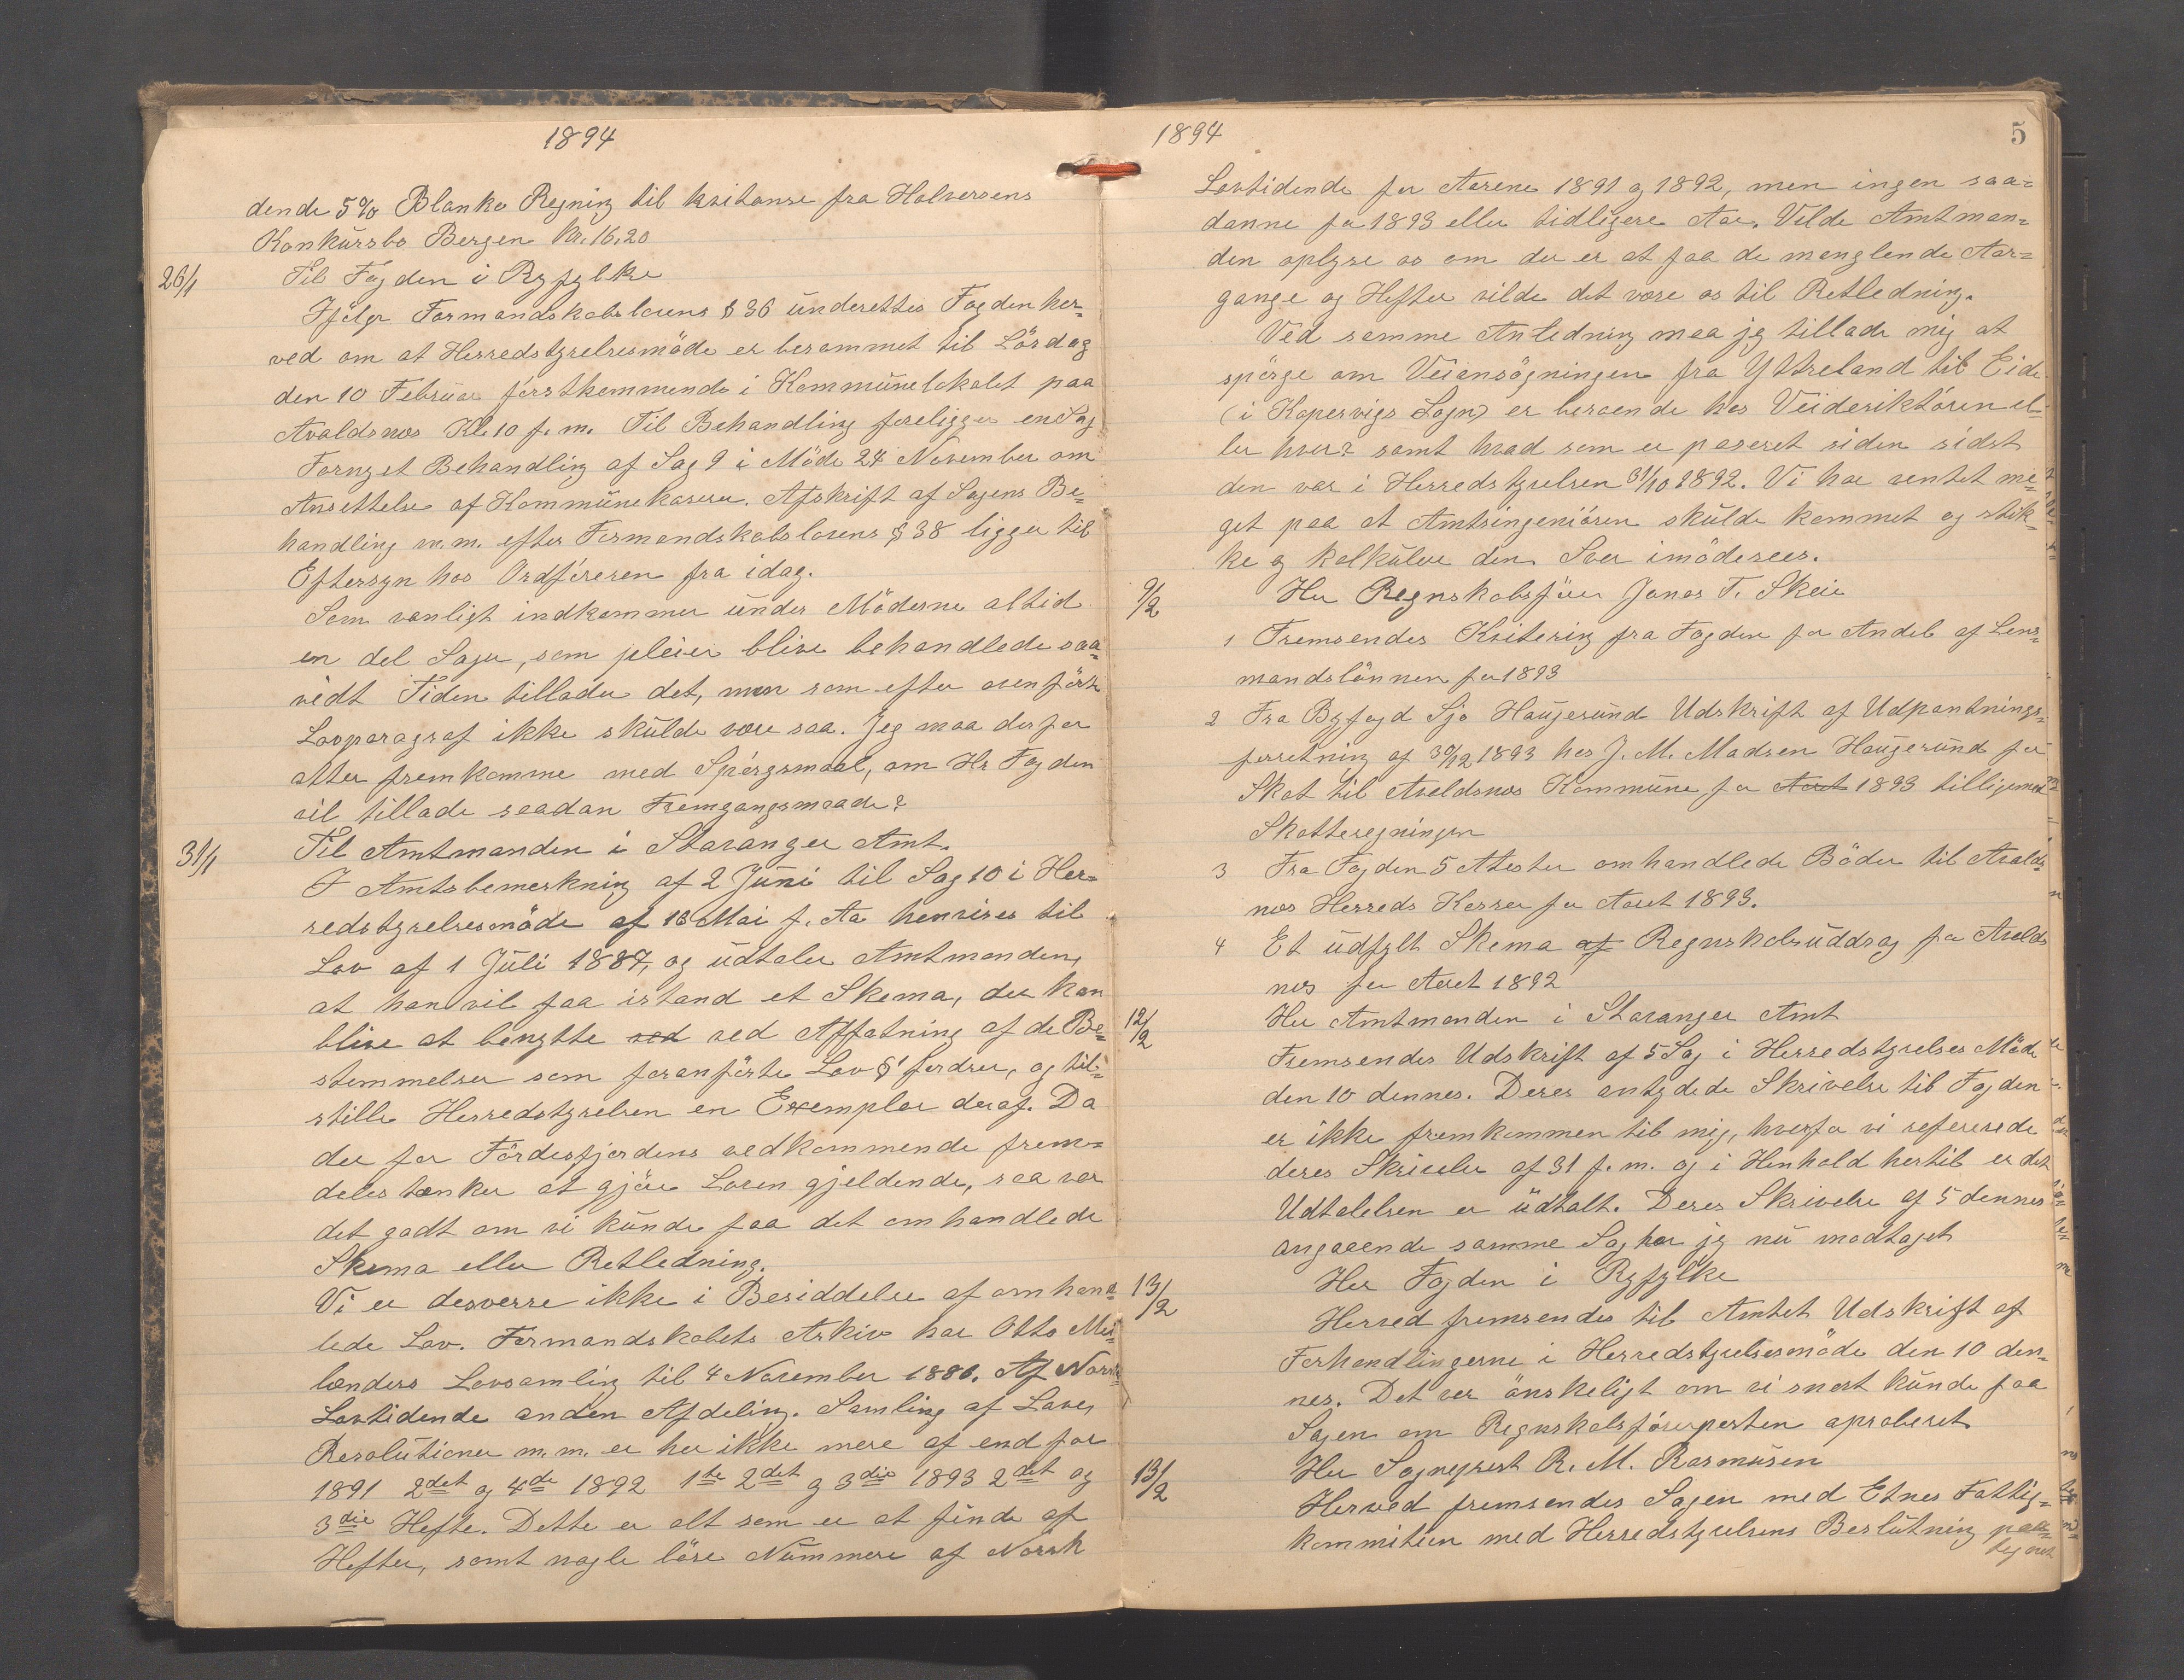 1894
dende 5% Blanko Regning til kvitanse fra Halversens
Konkursbo Bergen Kr. 16,20
26/1 Til Fogden i Ryfylke
Ifølge Formandskabslovens § 36 underettes Fogden her=
ved om at Herredstyrelsesmöde er berammet til Lördag
den 10 Februar förstkommende i Kommunelokalet paa
Avaldsnes Kl. 10 f. m. Til Behandling foreligger en Sag
Fornyet Behandling af Sag 9 i Möde 24 November om
Ansettelse af Kommunekaserer. Afskrift af Sagens Be=
handling m. m. efter Formandskabslovens § 38 ligger til
Eftersyn hos Ordföreren fra idag.
Som vanligt indkommer under Möderne altid
en del Sager, som pleier blive behandlede saa=
vidt Tiden tillader det, men som efter ovenförte
Lovparagraf ikke skulde være saa. Jeg maa derfor
atter fremkomme med Spörgsmaal, om Hr Fogden
vil tillade saadan Fremgangsmaade?
31/1 Til Amtmanden i Stavanger Amt.
I Amtsbemerkning af 2 Juni til Sag 10 i Her=
redstyrelsesmöde af 16 Mai f. Aa henvises til
Lov af 1 Juli 1887, og udtaler Amtmanden,
at han vil faa istand et Skema, der kan
blive at benytte ved ved Affatning af de Be=
stemmelser som foranförte Lov § 1 fordrer, og til=
stille Herredstyrelsen en Exemplar deraf. Da
der for Fördesfjordens vedkommende frem=
deles tænkes at gjöre Loven gjeldende, saa var
det godt om vi kunde faa det omhandlede
Skema eller Retledning.
Vi er desverre ikke i Besiddelse af omhand=
lede Lov. Formandskabets Arkiv har Otto Mei=
lænders Lovsamling til 4 November 1880. Af Norsk
Lovtidende anden Afdeling. Samling af Love,
Resolutioner m. m. er her ikke mere af end for
1891 2det og 4de 1892 1ste 2det og 3die 1893 2det og
3die Hefte. Dette er alt som er at finde af
Hefter, samt nogle löse Nummere af Norsk
1894
5
Lovtidende for Aarene 1891 og 1892, men ingen saa=
danne for 1893 eller tidligere Aar. Vilde Amtman=
den oplyse os om der er at faa de manglende Aar=
gange og Hefter vilde det være os til Retledning.
Ved samme Anledning maa jeg tillade mig at
spörge om Veiansögningen fra Yttreland til Eide
(i Kopervigs Sogn) er beroende hos Veideriktören el=
ler hvor? samt hvad som er paseret siden sidst
den var i Herredstyrelsen 31/10 1892. Vi har ventet me=
get paa at Amtsingeniören skulde kommet og stik=
ke og kalkulere den. Svar imödesees.
9/2 Her Regnskabsförer Jonas T. Skeie
1 Fremsendes Kvitering fra Fogden for Andel af Lens=
mandslönnen for 1893
2 Fra Byfogd Sjo Haugesund Udskrift af Udpantnings=
forretning af 30/12 1893 hos J. M. Madsen Haugesund for
Skat til Avaldsnes Kommune for Aaret 1893 tilligemed
Skatteregningen
3 Fra Fogden 5 Attester omhandlede Böder til Avalds=
nes Herreds Kasse for Aaret 1893.
4 Et udfylt Skema af Regnskabsuddrag for Avalds
nes for Aaret 1892
12/2 Her Amtmanden i Stavanger Amt
Fremsendes Udskrift af 5 Sag i Herredstyrelses Möde
den 10 dennes. Deres antydede Skrivelse til Fogden
er ikke fremkommen til mig, hverfor vi refererede
deres Skrivelse af 31 f. m. og i Henhold hertil er det
Udtalelsen er udtalt. Deres Skrivelse af 5 dennes
angaaende samme Sag har jeg nu modtaget
13/2 Her Fogden i Ryfylke
Herved fremsendes til Amtet Udskrift af
Forhandlingerne i Herredstyrelsesmöde den 10 den=
nes. Det var önskeligt om vi snart kunde faa
Sagen om Regnskabsförerposten aproberet
13/2 Her Sogneprest R. M. Rasmusen
Herved fremsendes Sagen med Etnes Fattig=
kommision med Herredstyrelsens Beslutning paa=
tegnet